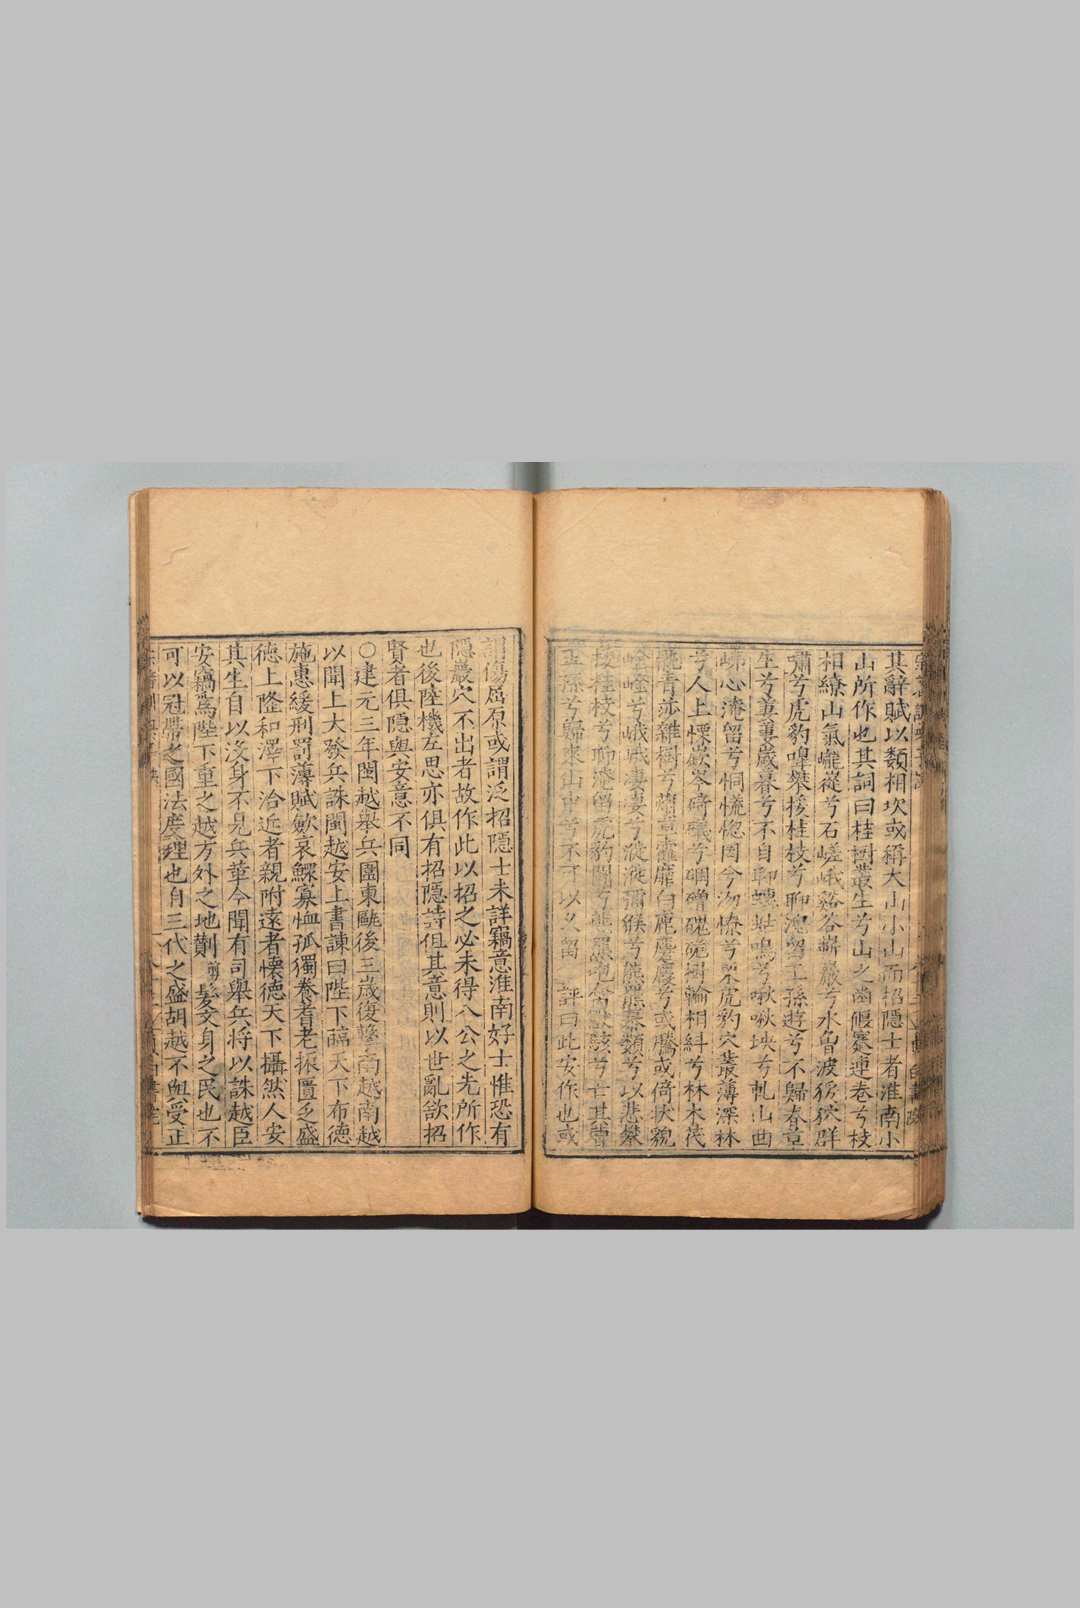 其辭賦以類相次或稱大山小山而招隱士者淮南小
山所作也其詞曰桂樹叢生兮山之幽偃蹇連卷兮枝
相繚山氣巃嵸兮石嵯峨谿谷嶄巖兮水曾波猨狖群
嘯兮虎豹嘷攀援桂枝兮聊淹留王孫遊兮不歸春草
生兮萋萋歲暮兮不自聊蟪蛄鳴兮啾啾坱兮軋山曲
岪心淹留兮恫慌惚罔兮沕憭兮栗虎豹穴叢薄深林
兮人上慄嶔岑碕礒兮碅磳磈硊樹輪相糾兮林木茷
骫青莎雜樹兮薠草靃靡白鹿麏麚兮或騰或倚狀貌
崟崟兮峨峨淒淒兮漇漇獼猴兮熊羆慕類兮以悲攀
援桂枝兮聊淹留虎豹鬬兮熊羆咆禽獸駭兮亡其曹
王孫兮歸來山中兮不可以久留 評曰此安作也或
謂傷屈原或謂泛招隱士未詳竊意淮南好士惟恐有
隱巖穴不出者故作此以招之必未得八公之先所作
也後陸機左思亦俱有招隱詩但其意則以世亂欲招
賢者俱隱與安意不同
○建元三年閩越舉兵圍東甌後三歲復擊南越南越
以聞上大發兵誅閩越安上書諫曰陛下臨天下布德
施惠緩刑罰薄賦斂哀鰥寡恤孤獨養耆老振匱乏盛
德上隆和澤下洽近者親附遠者懷德天下攝然人安
其生自以沒身不見兵革今聞有司舉兵將以誅越臣
安竊為陛下重之越方外之地劗剪髮文身之民也不
可以冠帶之國法度理也自三代之盛胡越不與受正